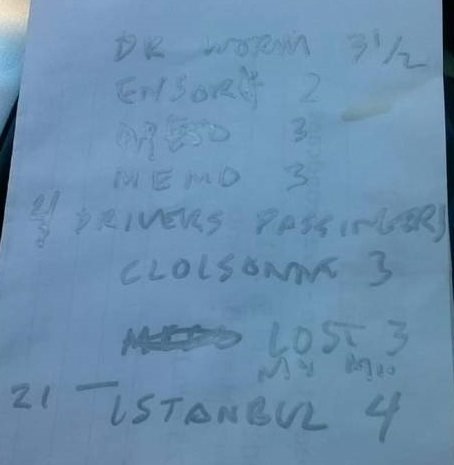 DR WORM 3 1/2
ENSOR 2
3
MEMO 3
DRIVERS PASSINGERS
CLOLSONNE 3
LOST 3
MY
21 - ISTANBUL 4